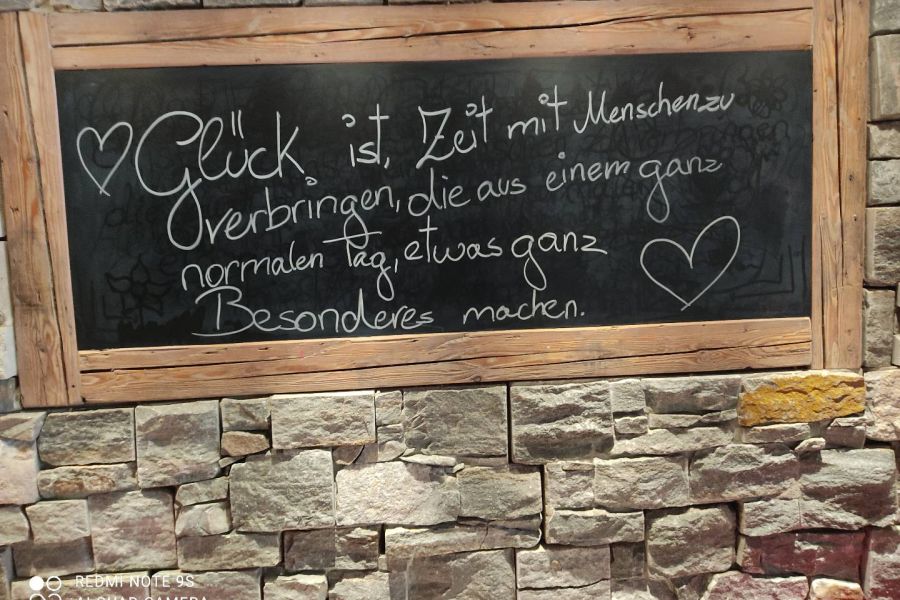 Glück ist, Zeit mit Menschen zu
verbringen, die aus einem ganz
normalen Tag, etwas ganz
Besonderes machen.
REDMI NOTE 9S
AI QUAD CAMERA